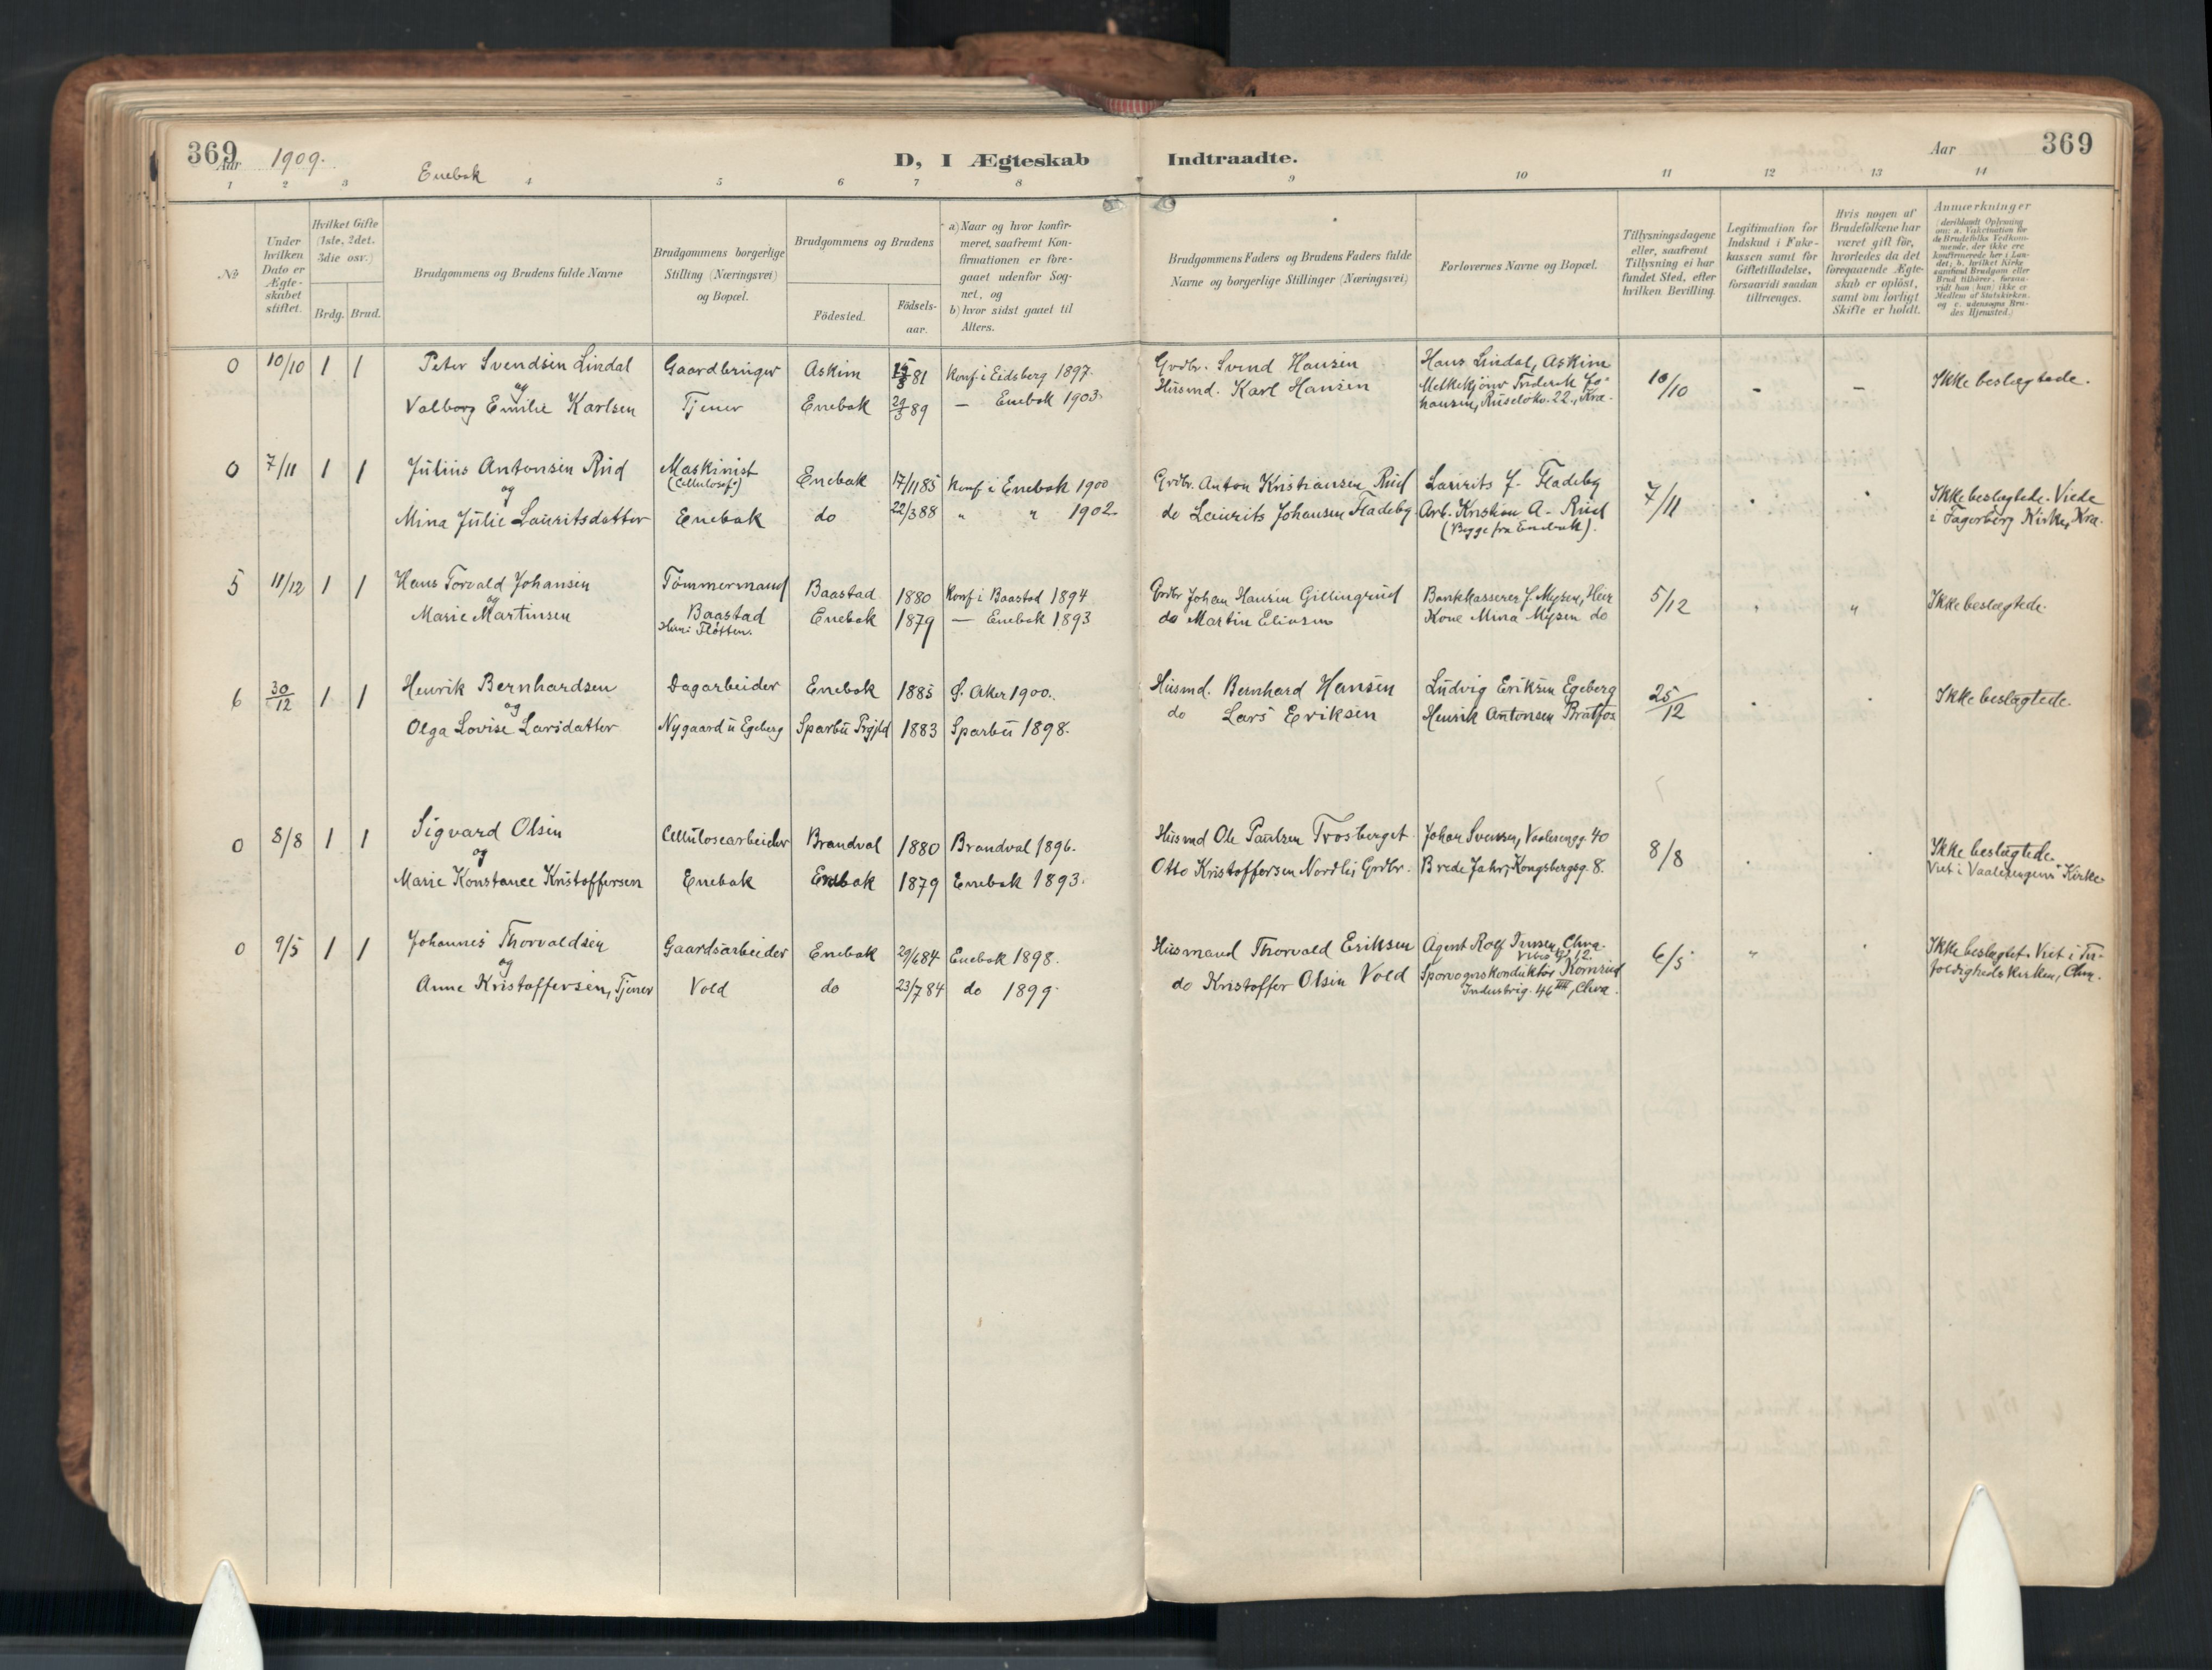 369
Aar 1909.
Enebak
D, I Ægteskab Indtraadte.
Aar
369
1 2 3 4 5 6 7 8 9 10 11 12 13 14
No
Under hvilken Dato er Ægteskabet stiftet.
Hvilket Gifte (1ste, 2det, 3die osv.)
Brdg. Brud.
Brudgommens og Brudens fulde Navne
Brudgommens borgerlige Stilling (Næringsvei) og Bopæl.
Brudgommens og Brudens
Födested.
Födsels-aar.
a) Naar og hvor konfir-
meret, saafremt Kon-
firmationen er fore-
gaaet udenfor Sog-
net, og
b) hvor sidst gaaet til
Alters.
Brudgommens Faders og Brudens Faders fulde
Navne og borgerlige Stillinger (Næringsvei)
Forlovernes Navne og Bopæl.
Tillysningsdagene
eller, saafremt
Tillysning ei har
fundet Sted, efter
hvilken Bevilling.
Legitimation for
Indskud i Enke-
kassen samt for
Giftetilladelse,
forsaavidt saadan
tiltrænges.
Hvis nogen af
Brudefolkene har
været gift för,
hvorledes da det
foregaaende Ægte-
skab er oplöst,
samt om lovligt
Skifte er holdt.
Anmærkninger
(deriblandt Oplysning
om: a. Vakcination for
de Brudefolks Vedkom-
mende, der ikke ere
konfirmerede her i Lan-
det; b. hvilket Kirke-
samfund Brudgom eller
Brud tilhörer, forsaa-
vidt han (hun) ikke er
Medlem af Statskirken,
og c. udensogns Bru-
des Hjemsted.)
0 10/10 1 1 Peter Svendsen Lindal Gaardbruger Askim 81 Konf. i Eidsberg 1897. Grdbr. Svend Hansen Hans Lindal, Askim 10/10 - - Ikke beslægtede.
og
Valborg Emilie Karlsen Tjener Enebak 29/3 89 — Enebak 1903. Husmd. Karl Hansen Melkekjører Frederik Jo-
hansen, Ruseløkv. 22., Kra.
0 7/11 1 1 Julius Antonsen Rud Maskinist (Cellulosef.) Enebak 17/11 85 Konf i Enebak 1900 Grdbr. Anton Kristiansen Rud Laurits J. Fladeby 7/11 Ikke beslægtede. Viede
og
Mina Julie Lauritsdatter Enebak do 22/3 88 " " 1902. do Laurits Johansen Fladeby. Arb. Kristian A. Rud i Fagerborg Kirke, Kra.
(Begge fra Enebak).
5 11/12 1 1 Hans Torvald Johansen Tømmermand Baastad 1880 Konf i Baastad 1894 Grdbr Johan Hansen Gillingrud Bankkasserer J. Mysen, Heir 5/12 " Ikke beslægtede.
og
Marie Martinsen Baastad Enebak 1879 — Enebak 1893 do Martin Eliasen Kone Mina Mysen do
6 30/12 1 1 Henrik Bernhardsen Dagarbeider Enebak 1885 Ø. Aker 1900. Husmd. Bernhard Hansen Ludvig Eriksen Egeberg 25/12 Ikke beslægtede.
og
Olga Lovise Larsdatter Nygaard u Egeberg Sparbu Prgjld 1883 Sparbu 1898. do Lars Eriksen Henrik Antonsen Bratfos
0 8/8 1 1 Sigvard Olsen Cellulosearbeider Brandval 1880 Brandval 1896. Husmd Ole Paulsen Trosberget. Johan Svensen, Vaalerengg. 40 8/8 Ikke beslægtede.
og
Marie Konstance Kristoffersen Enebak Enebak 1879 Enebak 1893. Otto Kristoffersen Nordli, Grdbr. Brede Jahr, Kongsbergsg. 8. Viet i Vaalerengens Kirke
0 9/5 1 1 Johannes Thorvaldsen Gaardsarbeider Enebak 29/6 84 Enebak 1898. Husmand Thorvald Eriksen Agent Rolf Jensen, Chra. 6/5 " Ikke beslægtet. Viet i Tre-
og
Anne Kristoffersen, Tjener Vold do 23/7 84 do 1899. do Kristoffer Olsen Vold Sporvognskonduktør Kornrud foldighedskirken, Chra.
Industrig. 46, Chra.